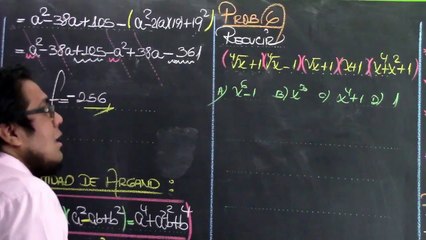 = a² - 38a + 105 - (a² - 2(a)(19) + 19²)
= a² - 38a + 105 - a² + 38a - 361
= -256
TIDAD DE ARGAND :
(a² - ab + b²) = a⁴ + a²b² + b⁴
PROB 6
REDUCIR
(⁴√x + 1)(⁴√x - 1)(√x + 1)(x + 1)(x⁴ + x² + 1)
A) x⁶ - 1 B) x³ C) x⁴ + 1 D) 1